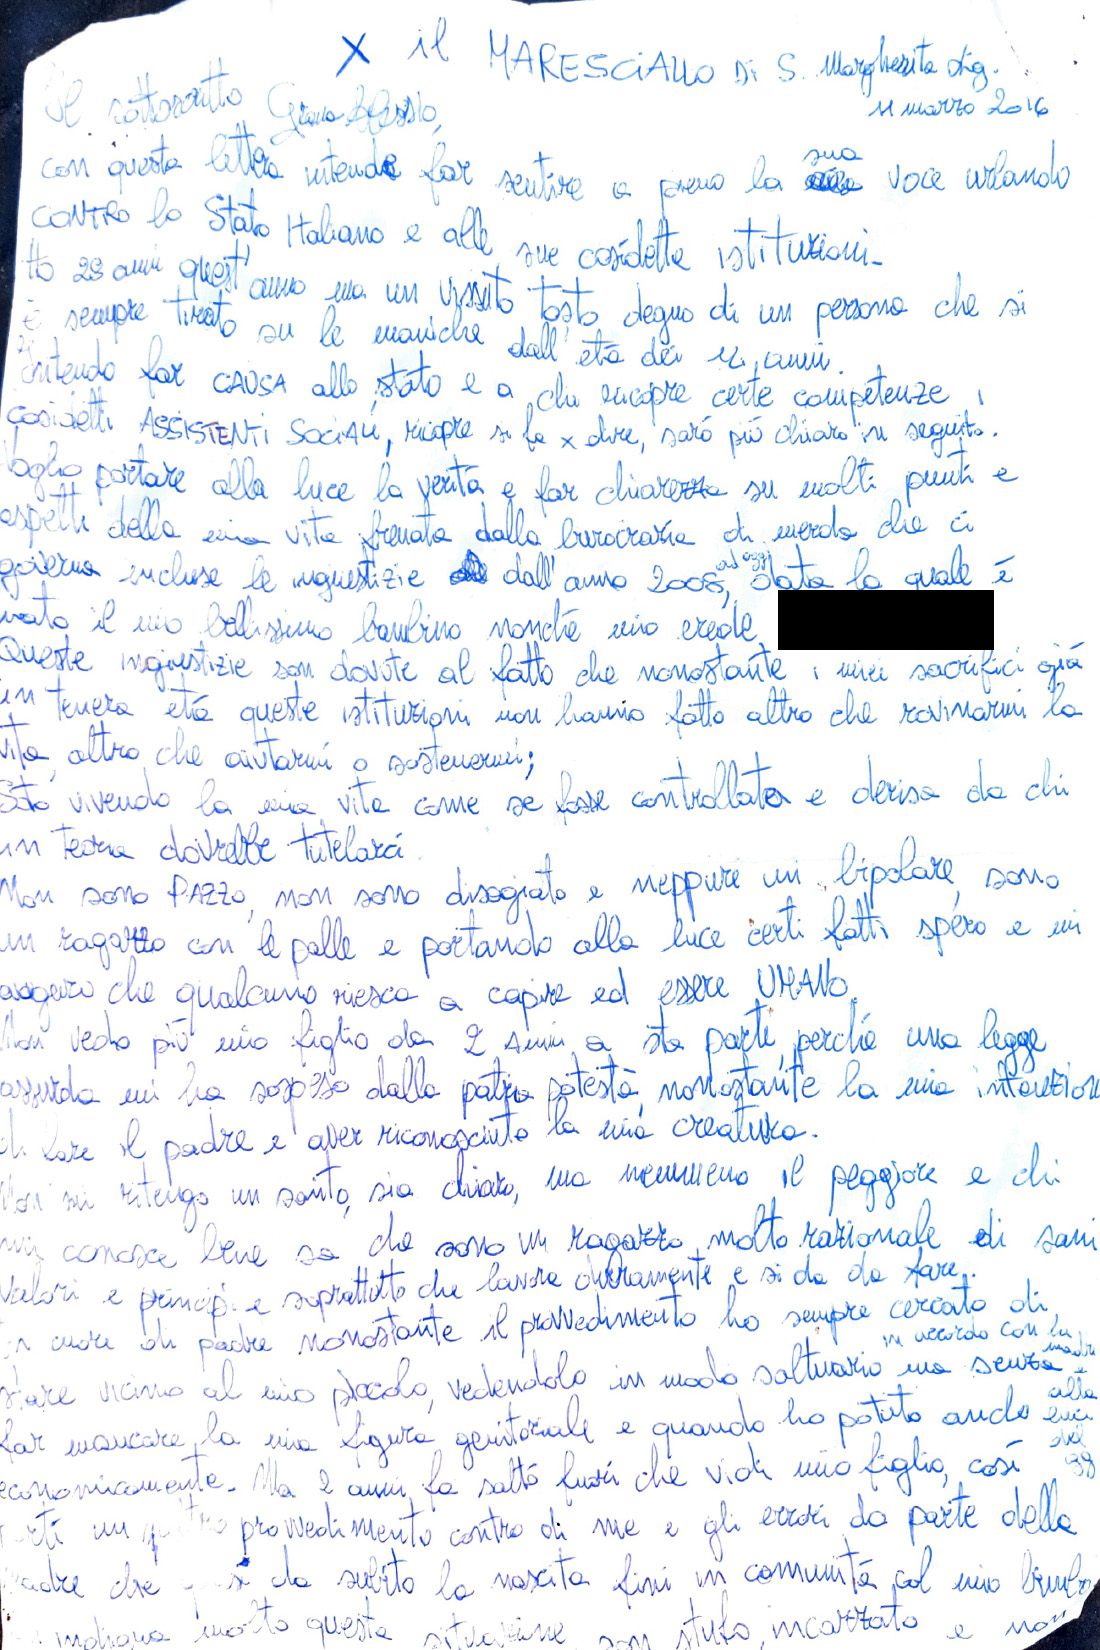 X il MARESCIALLO DI S. Margherita Lig.
11 marzo 2016
Il sottoscritto
con questa lettera intende far sentire a pieno la sua voce urlando
CONTRO lo Stato Italiano e alle sue cosidette istituzioni.
Ho 28 anni quest'anno ma un vissuto tosto degno di un persona che si
è sempre tirato su le maniche dall'età dei 12 anni.
intendo far CAUSA allo stato e a chi ricopre certe competenze, i
cosidetti ASSISTENTI SOCIALI, ricopre si fa x dire, sarò più chiaro in seguito.
Voglio portare alla luce la verità e far chiarezza su molti punti e
aspetti della mia vita frenata dalla burocrazia di merda che ci
governa incluse le ingiustizie dall'anno 2008, ad oggi data la quale è
nato il mio bellissimo bambino nonchè mio erede
Queste ingiustizie son dovute al fatto che nonostante i miei sacrifici già
in tenera età queste istituzioni non hanno fatto altro che rovinarmi la
vita, altro che aiutarmi o sostenermi;
Sto vivendo la mia vita come se fosse controllata e derisa da chi
in teoria dovrebbe tutelarci.
Non sono PAZZO, non sono disagiato e neppure un bipolare, sono
un ragazzo con le palle e portando alla luce certi fatti spero e mi
auguro che qualcuno riesca a capire ed essere UMANO.
Non vedo più mio figlio da 2 Anni a sta parte, perchè una legge
assurda mi ha sospeso dalla patria potestà, nonostante la mia intenzione
di fare il padre e aver riconosciuto la mia creatura.
Non mi ritengo un santo, sia chiaro, ma nemmeno il peggiore e chi
mi conosce bene sa che sono un ragazzo molto razionale di sani
valori e principi e soprattutto che lavora duramente e si da da fare.
In cuore di padre nonostante il provvedimento ho sempre cercato di
stare vicino al mio piccolo, vedendolo in modo saltuario in accordo con la madre ma senza
far mancare la mia figura genitoriale e quando ho potuto anche
economicamente. Ma 2 anni fa saltò fuori che vidi mio figlio, così
un provvedimento contro di me e gli errori da parte della
madre che da subito la nascita finì in comunità col mio bimbo
molto questa situazione, son stufo, incazzato e non